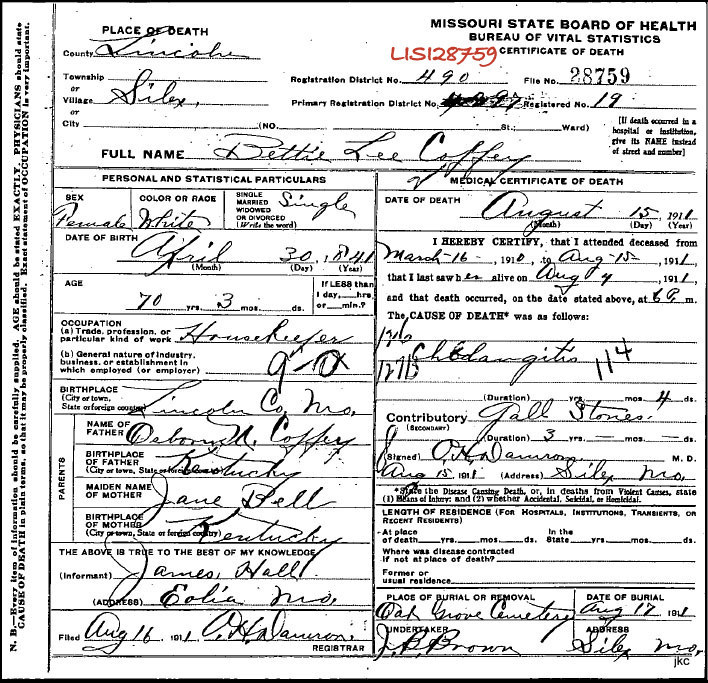 MISSOURI STATE BOARD OF HEALTH
BUREAU OF VITAL STATISTICS
CERTIFICATE OF DEATH
LISI28759
PLACE OF DEATH
County Lincoln
Township
or
Village Silex,
or
City (NO. St.; Ward)
Registration District No. 490 File No. 28759
Primary Registration District No. Registered No. 19
[If death occurred in a
hospital or institution,
give its NAME instead
of street and number]
FULL NAME Bettie Lee Coffey
PERSONAL AND STATISTICAL PARTICULARS
SEX
Female
COLOR OR RACE
White
SINGLE
MARRIED
WIDOWED
OR DIVORCED
(Write the word)
Single
DATE OF BIRTH
April 30, 1841
(Month) (Day) (Year)
AGE
70 yrs. 3 mos. ds.
If LESS than
1 day, hrs.
or min.?
OCCUPATION
(a) Trade, profession, or
particular kind of work Housekeeper
(b) General nature of industry,
business, or establishment in
which employed (or employer)
BIRTHPLACE
(City or town,
State or foreign country)
Lincoln Co, Mo.
PARENTS
NAME OF
FATHER
Osborn N. Coffey
BIRTHPLACE
OF FATHER
(City or town, State or foreign country)
Kentucky
MAIDEN NAME
OF MOTHER
Jane Bell
BIRTHPLACE
OF MOTHER
(City or town, State or foreign country)
Kentucky
THE ABOVE IS TRUE TO THE BEST OF MY KNOWLEDGE
(Informant) James Hall
(ADDRESS) Eolia Mo.
Filed Aug 16 1911 O.H. Damron.
REGISTRAR
MEDICAL CERTIFICATE OF DEATH
DATE OF DEATH
August 15, 1911
(Month) (Day) (Year)
I HEREBY CERTIFY, that I attended deceased from
March-16-, 1910, to Aug-15-, 1911
that I last saw her alive on Aug 1911,
and that death occurred, on the date stated above, at m.
The CAUSE OF DEATH* was as follows:
Cholangitis 114
(Duration) yrs. mos. 4 ds.
Contributory Gall Stones.
(SECONDARY)
(Duration) 3 yrs. mos. ds.
(Signed) O.H. Damron M. D.
Aug 15, 1911 (Address) Silex Mo.
*State the Disease Causing Death, or, in deaths from Violent Causes, state
(1) Means of Injury; and (2) whether Accidental, Suicidal, or Homicidal.
LENGTH OF RESIDENCE (FOR HOSPITALS, INSTITUTIONS, TRANSIENTS, OR
RECENT RESIDENTS)
At place
of death yrs. mos. ds.
In the
State yrs. mos. ds.
Where was disease contracted
If not at place of death?
Former or
usual residence
PLACE OF BURIAL OR REMOVAL
Oak Grove Cemetery
DATE OF BURIAL
Aug 17 1911
UNDERTAKER
J.B. Brown
ADDRESS
Silex Mo,
jkc
N. B.—Every item of information should be carefully supplied. AGE should be stated EXACTLY. PHYSICIANS should state
CAUSE OF DEATH in plain terms, so that it may be properly classified. Exact statement of OCCUPATION is very important.